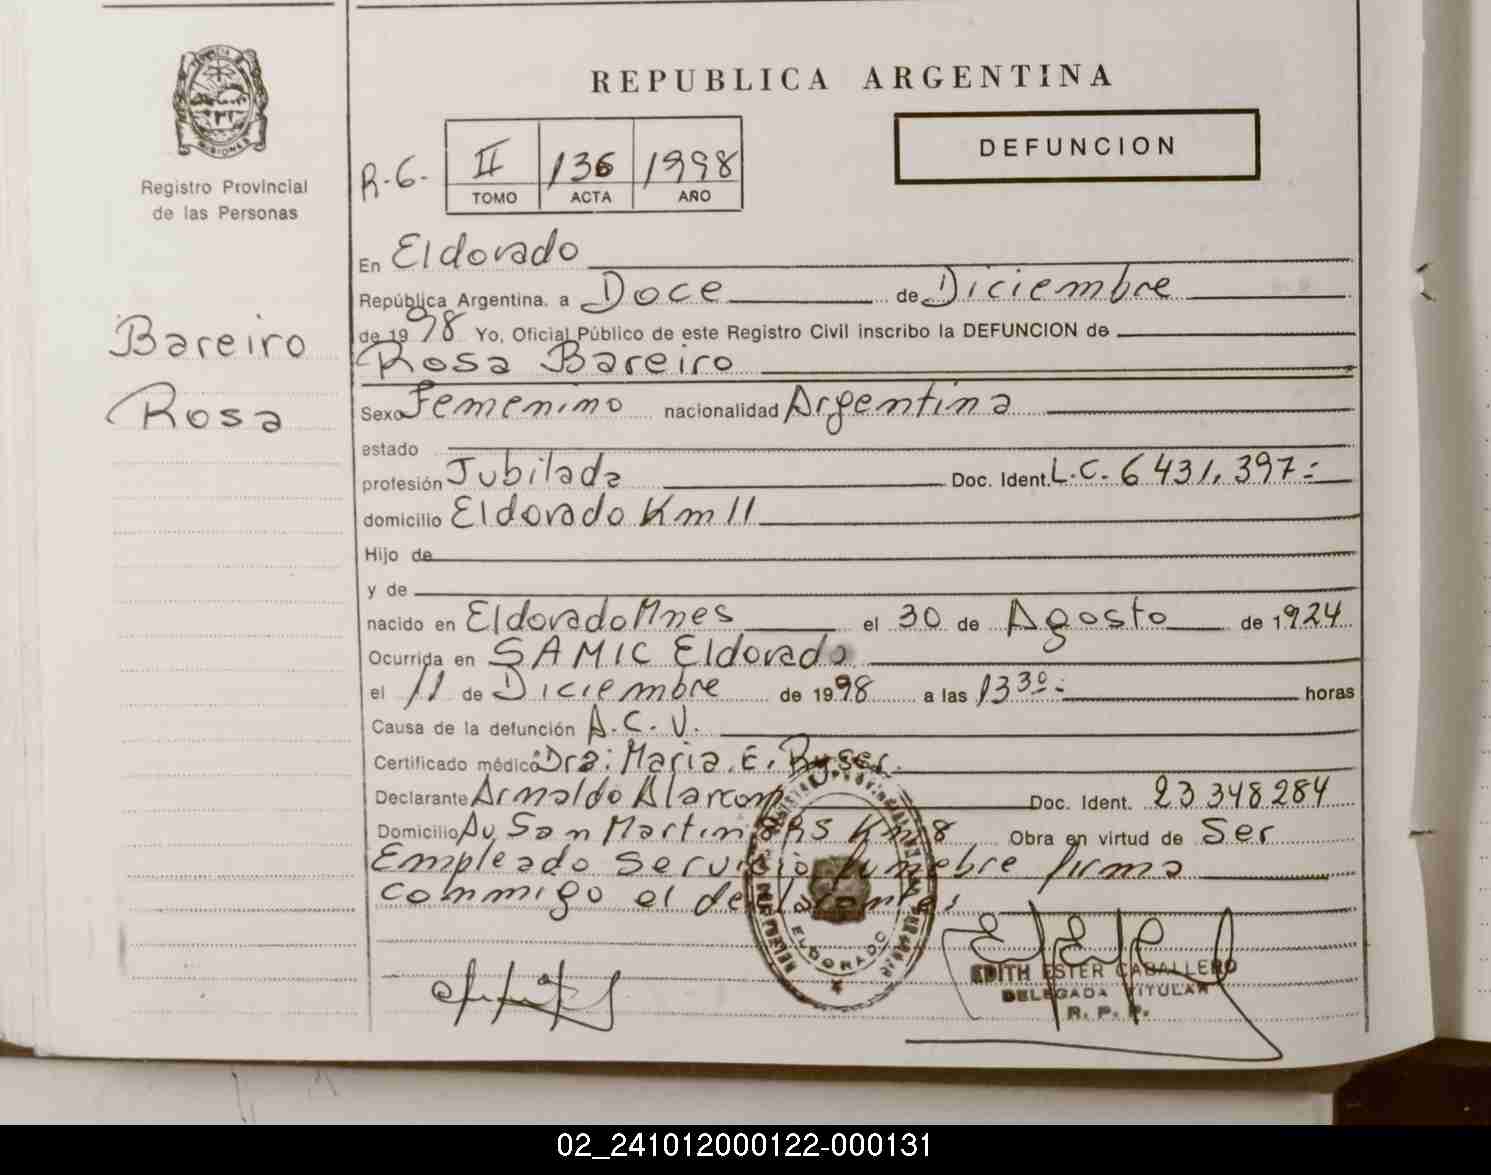 PROVINCIA DE
MISIONES
Registro Provincial
de las Personas
Bareiro
Rosa
REPUBLICA ARGENTINA
DEFUNCION
R.G.
II 136 1998
TOMO ACTA AÑO
En Eldorado
República Argentina, a Doce de Diciembre
de 1998 Yo, Oficial Público de este Registro Civil inscribo la DEFUNCION de
Rosa Bareiro
Sexo Femenino nacionalidad Argentina
estado
profesión Jubilada Doc. Ident. L.C. 6431.397=
domicilio Eldorado Km 11
Hijo de
y de
nacido en Eldorado Mnes el 30 de Agosto de 1924
Ocurrida en SAMIC Eldorado
el 11 de Diciembre de 1998 a las 13 30 = horas
Causa de la defunción A.C.V.
Certificado médico Dra: Maria. E. Ryser.
Declarante Arnaldo Alarcon Doc. Ident. 23348284
Domicilio Av San Martin Km 8 Obra en virtud de Ser
Empleado servicio funebre firma
commigo el declarante.
ELDORADO
EDITH ESTER CABALLERO
DELEGADA TITULAR
R. P. P.
02_241012000122-000131